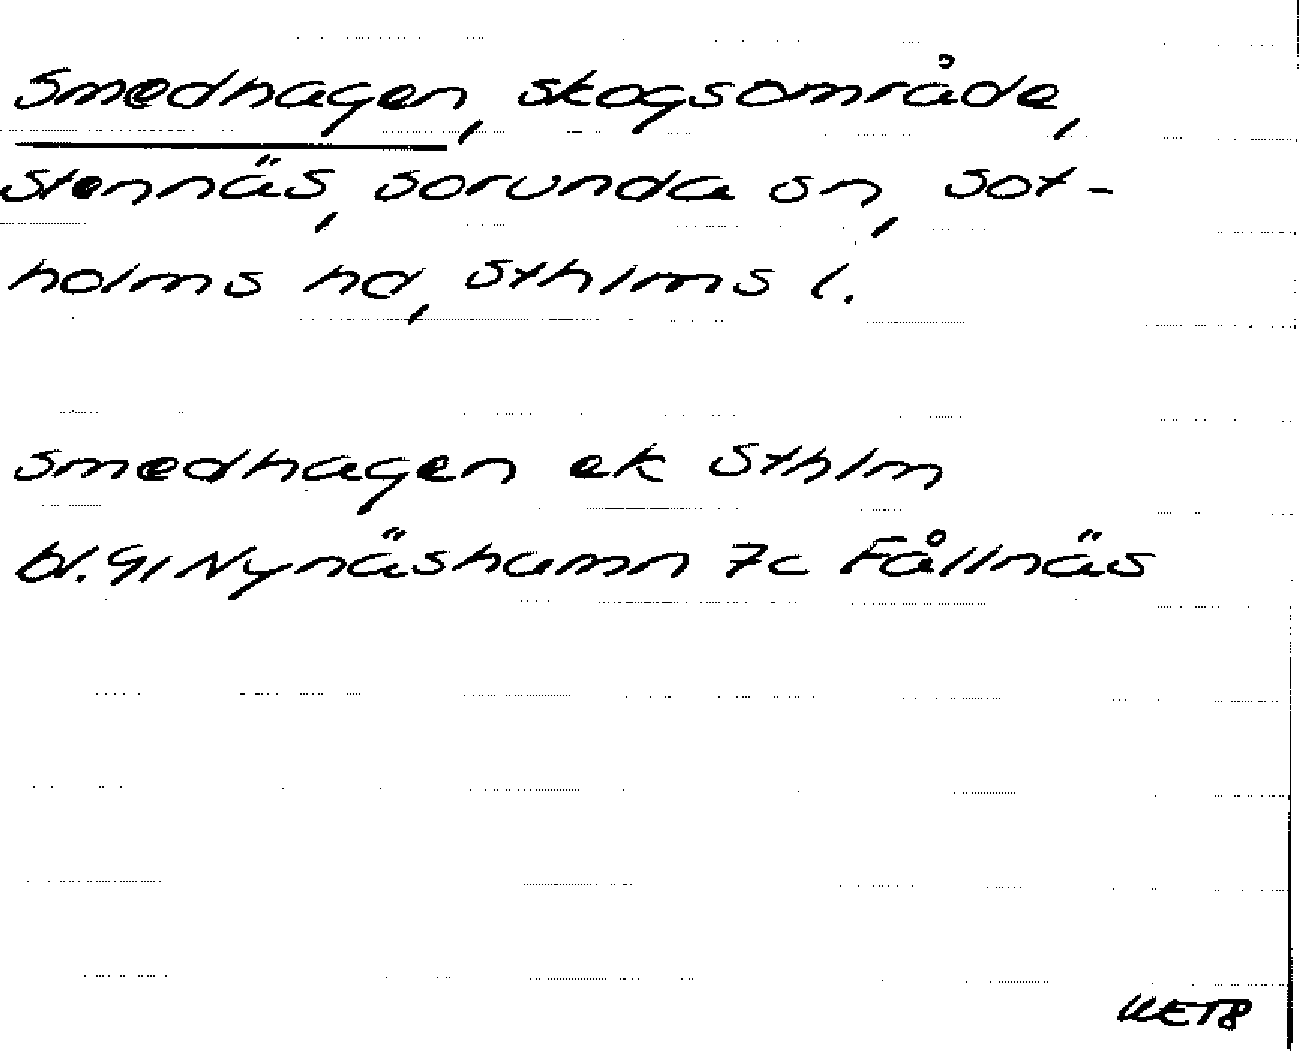 Smedhagen, skogsområde,
Stennäs, Sorunda sn, Sot-
holms hd, Sthlms l.
Smedhagen ek Sthlm
bl. 91 Nynäshamn 7c Fållnäs